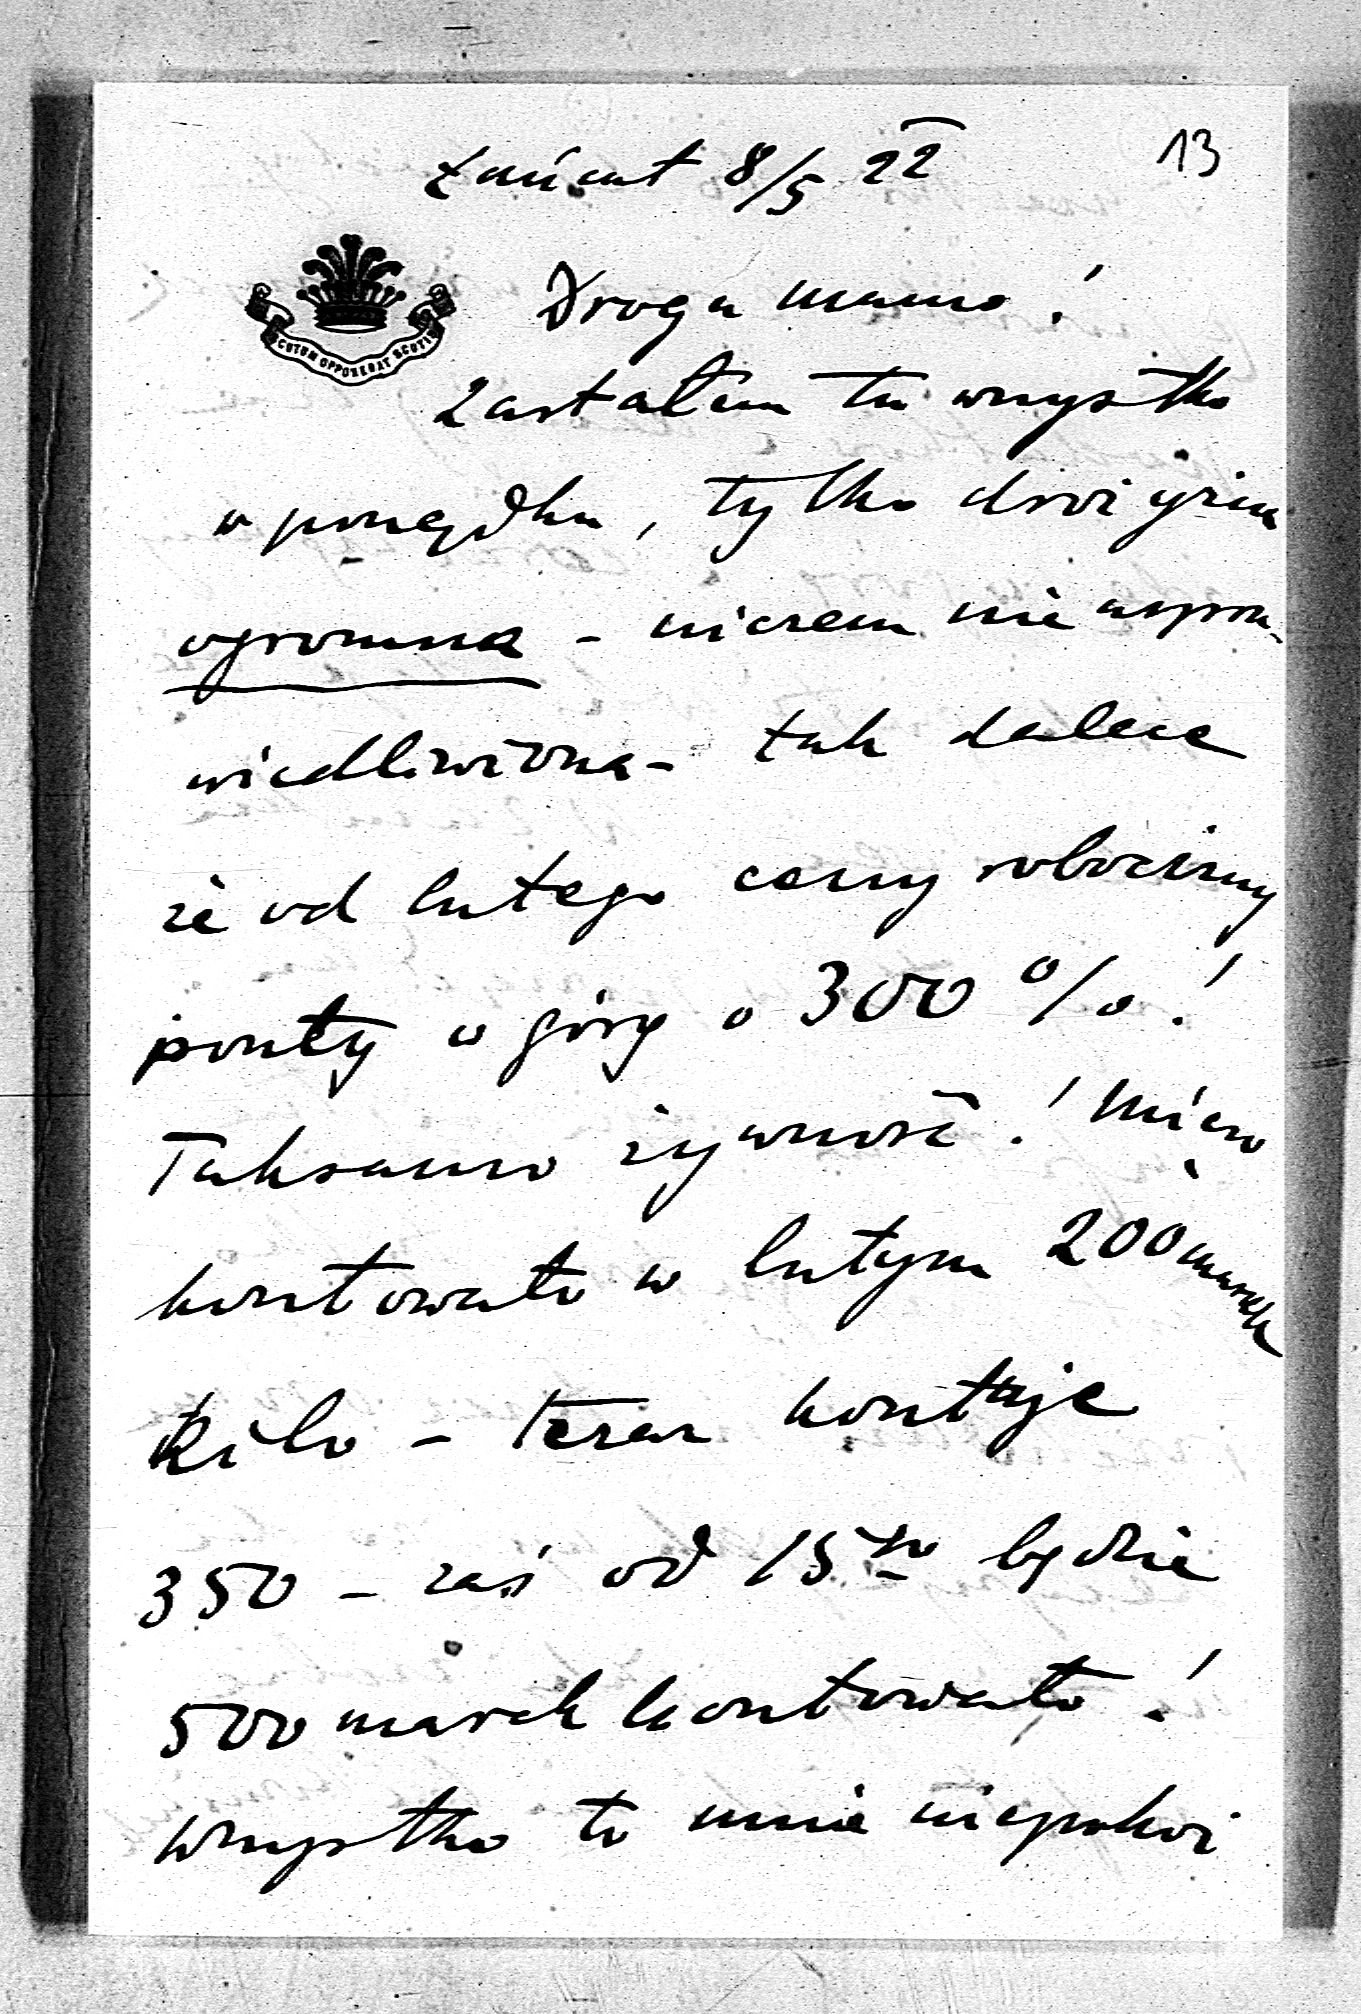 Łańcut 8/5 22
13
SCUTUM OPPONEBAT SCUTIS
Droga mamo!
Zastałem tu wszystko
w porządku, tylko drożyzna
ogromna - niczem nie uspra-
wiedliwiona - tak dalece
że od lutego ceny robocizny
poszły w górę o 300 %!
Taksamo żywność! Mięso
kosztowało w lutym 200 marek
Kilo - teraz kosztuje
350 - zaś od 15go będzie
500 marek kosztowało!
Wszystko to mnie niepokoi